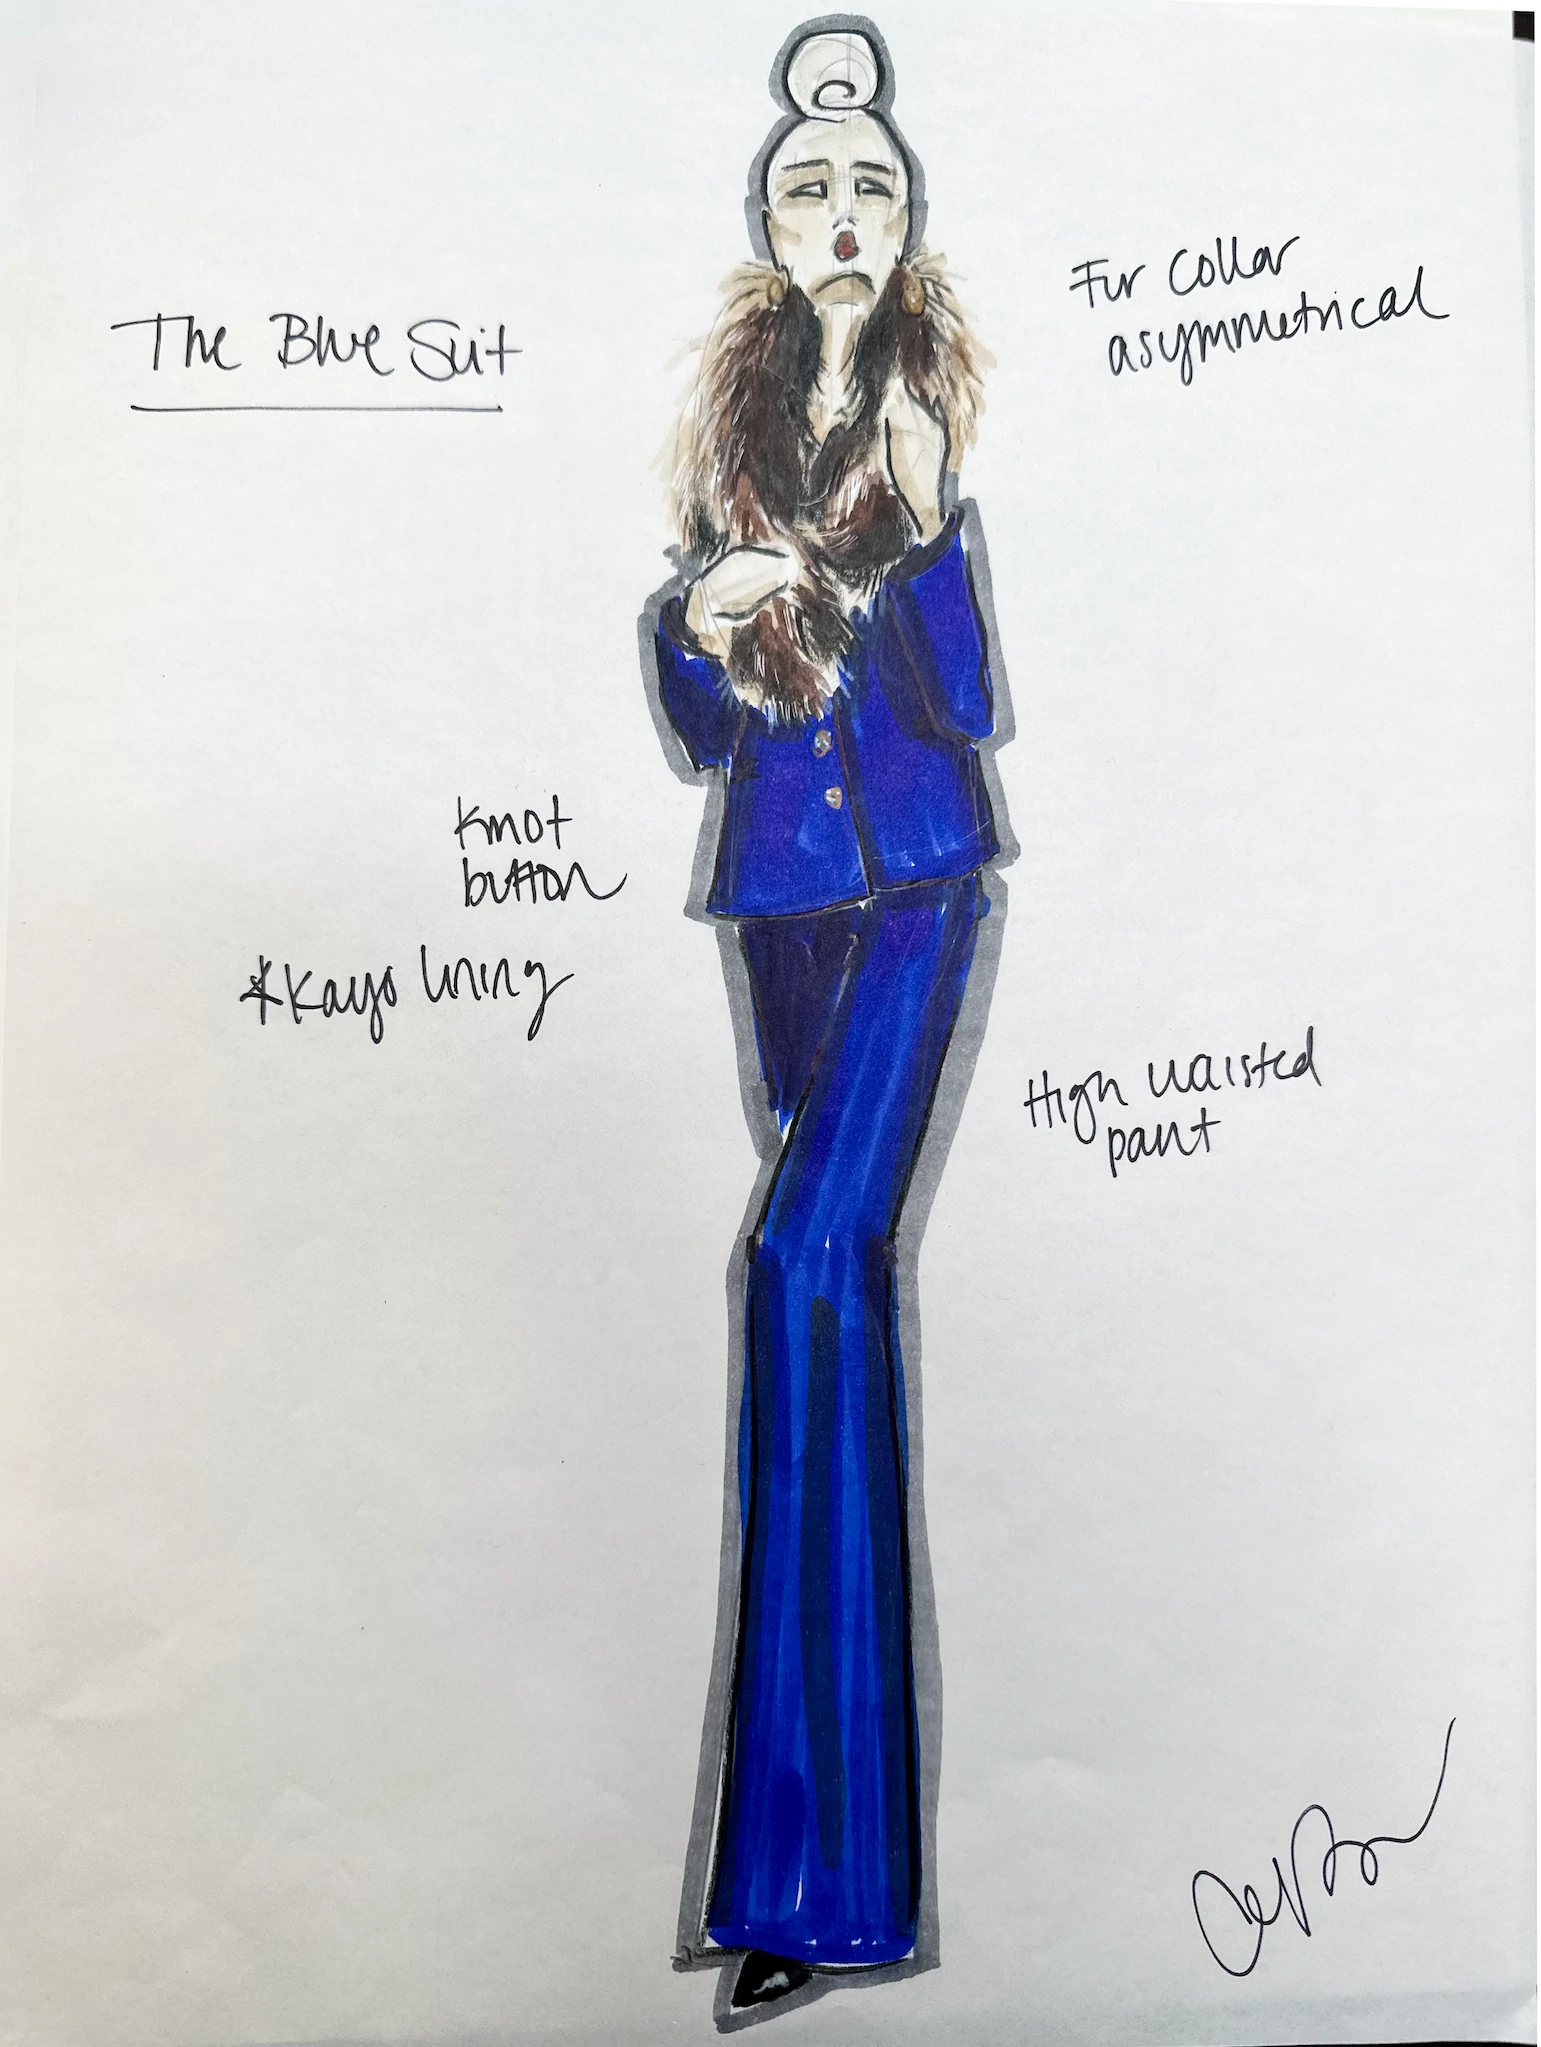 The Blue Suit
Fur collar
asymmetrical
Knot
button
*Kayo lining
High waisted
pant